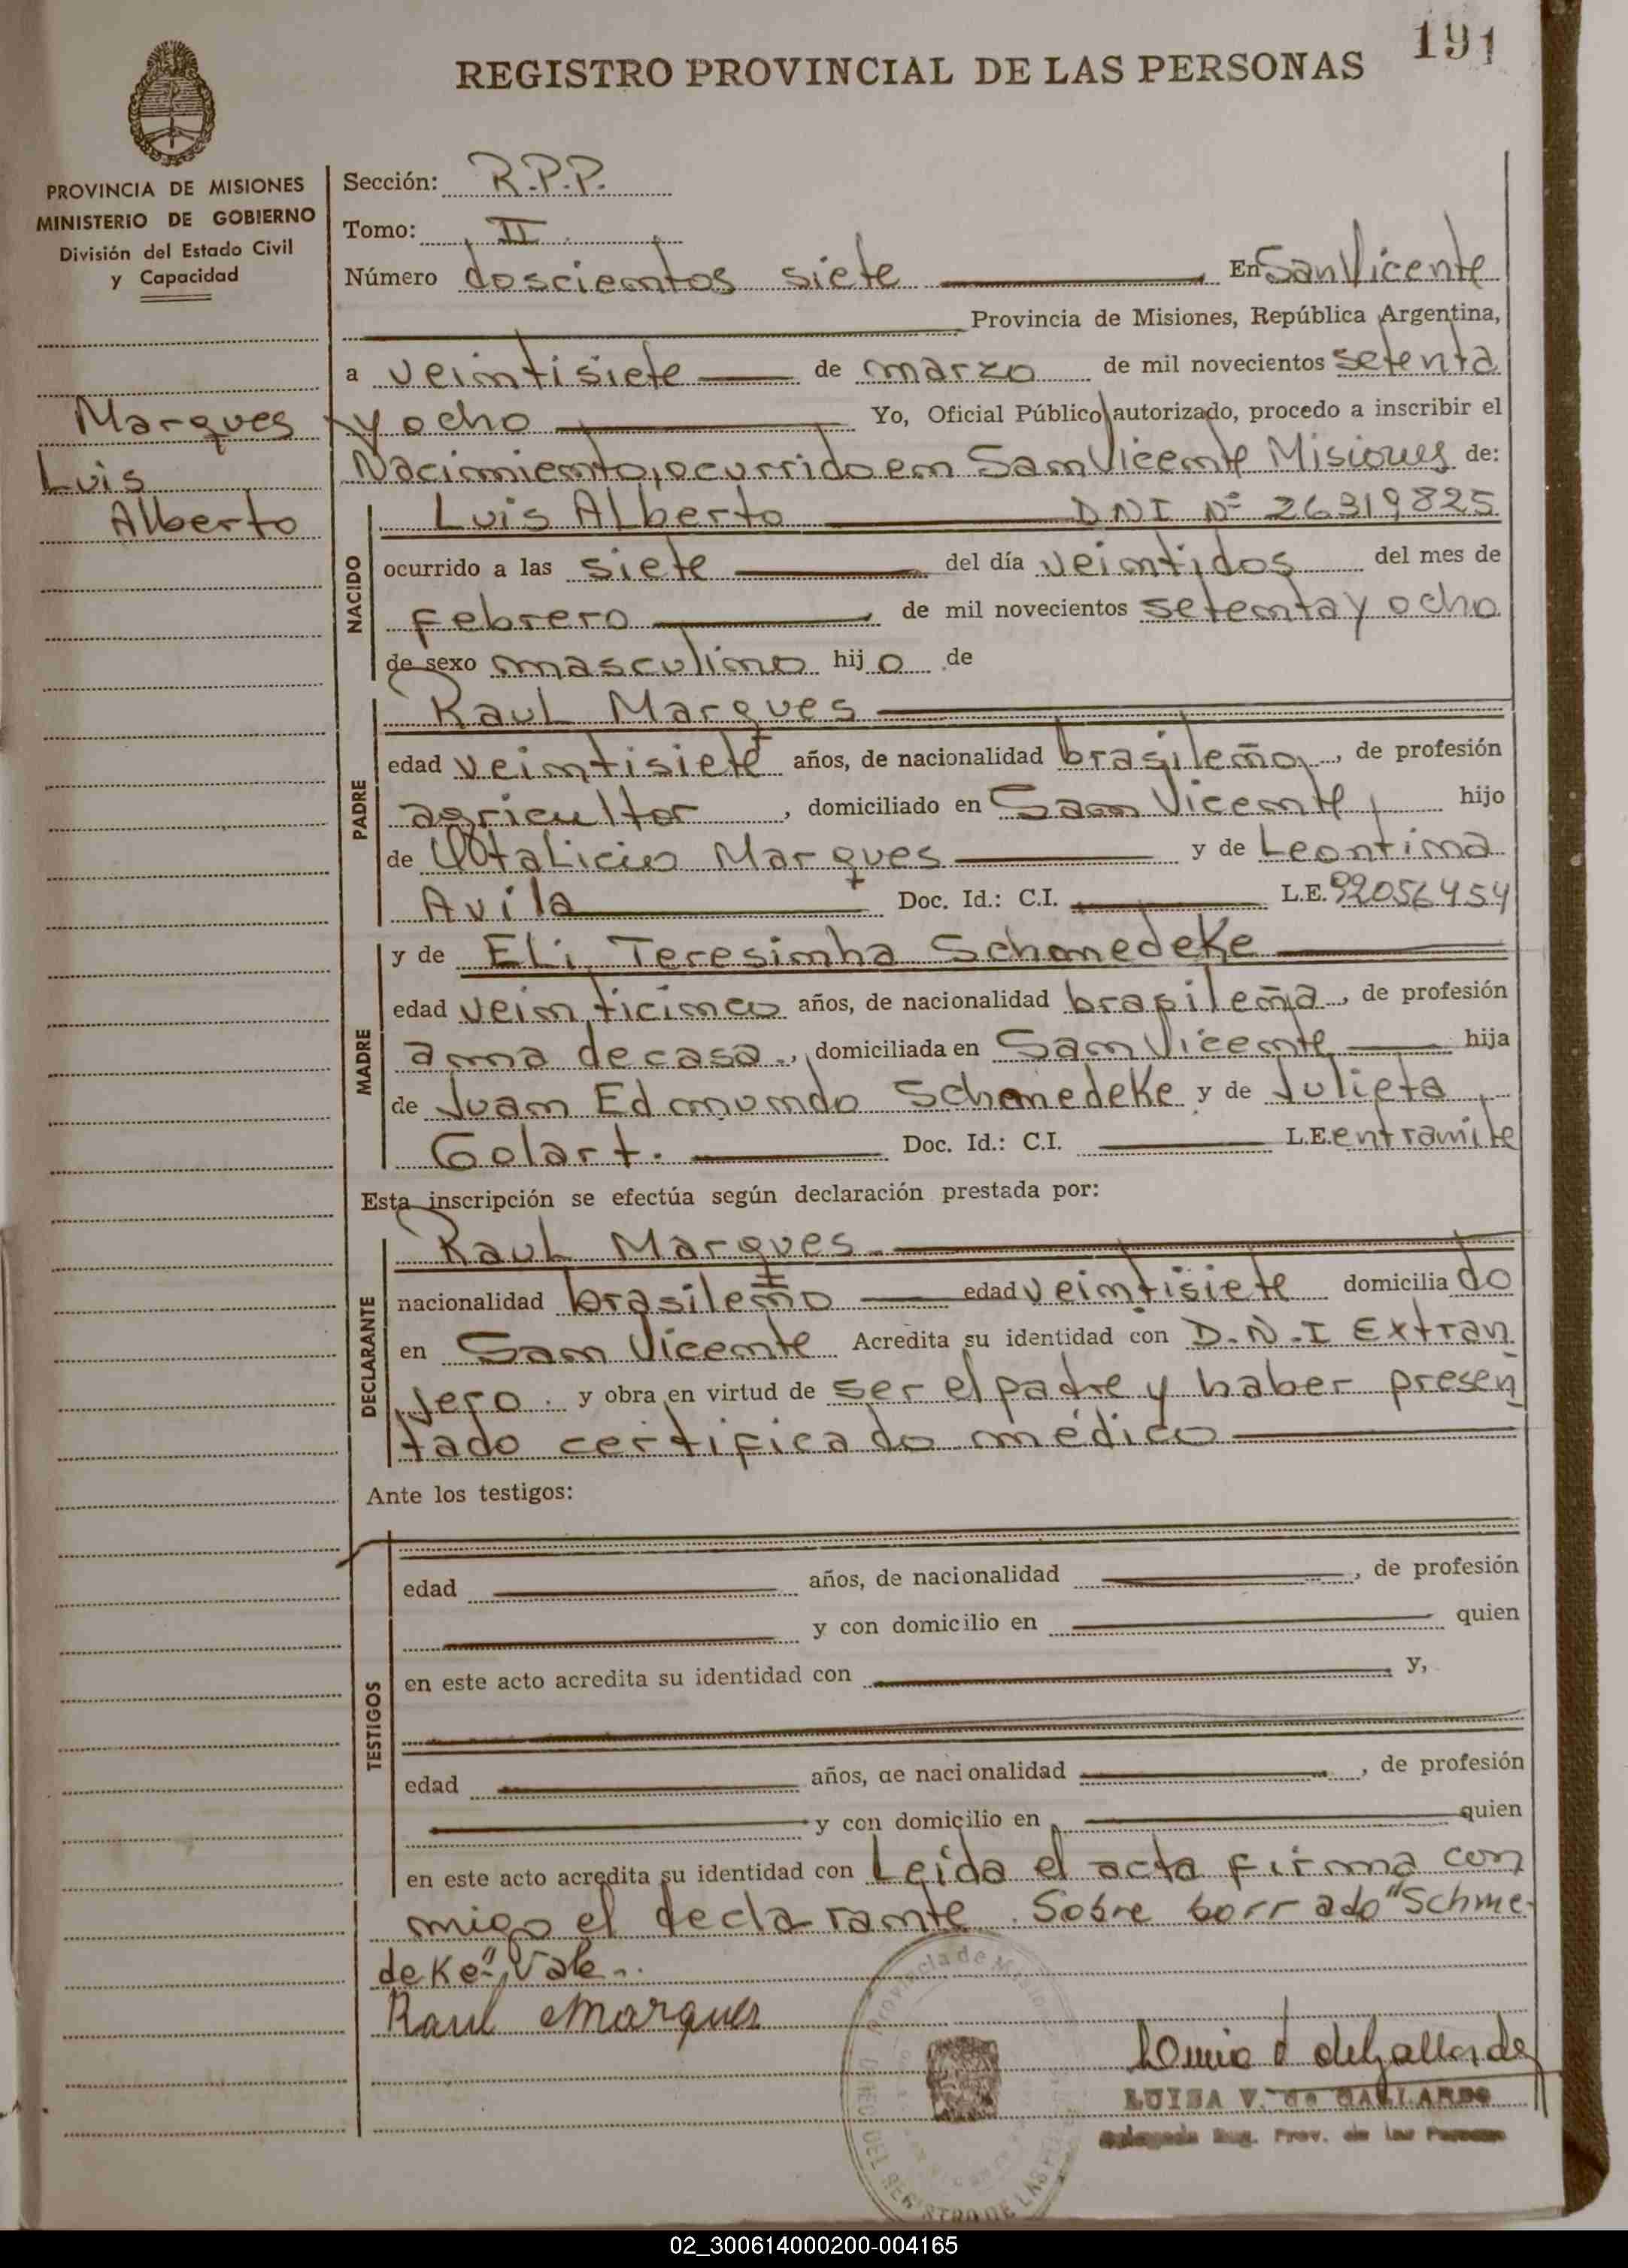 191
REGISTRO PROVINCIAL DE LAS PERSONAS
PROVINCIA DE MISIONES
MINISTERIO DE GOBIERNO
División del Estado Civil
y Capacidad
Marques
Luis
Alberto
Sección: R.P.P.
Tomo: II
Número doscientos siete En San Vicente
Provincia de Misiones, República Argentina,
a veintisiete de marzo de mil novecientos setenta
y ocho Yo, Oficial Público autorizado, procedo a inscribir el
Nacimiento, ocurrido en San Vicente Misiones de:
NACIDO
Luis Alberto DNI Nº 26319825
ocurrido a las siete del día veintidos del mes de
febrero de mil novecientos setenta y ocho
de sexo masculino hijo de
PADRE
Raul Marques
edad veintisiete años, de nacionalidad brasileño, de profesión
agricultor, domiciliado en San Vicente, hijo
de Marques y de Leontina
Avila Doc. Id.: C.I. L.E. 92056454
MADRE
y de Eli Teresinha Schmedeke
edad veinticinco años, de nacionalidad brasileña, de profesión
ama de casa, domiciliada en San Vicente hija
de Juan Edmundo Schmedeke y de Julieta
Golart. Doc. Id.: C.I. L.E. en tramite
Esta inscripción se efectúa según declaración prestada por:
DECLARANTE
Raul Marques
nacionalidad brasileño edad veintisiete domiciliado
en San Vicente Acredita su identidad con D.N.I Extran
jero. y obra en virtud de ser el padre y haber presen
tado certificado médico
Ante los testigos:
TESTIGOS
edad años, de nacionalidad , de profesión
y con domicilio en quien
en este acto acredita su identidad con y,
edad años, de nacionalidad , de profesión
y con domicilio en quien
en este acto acredita su identidad con Leida el acta firma con
migo el declarante. Sobre borrado "Schme-
deke" Vale.
Raul Marques
LUISA V. de GALLARDO
Delegada Reg. Prov. de las Personas
Provincia de Misiones
DEL REGISTRO DE LAS
02_300614000200-004165